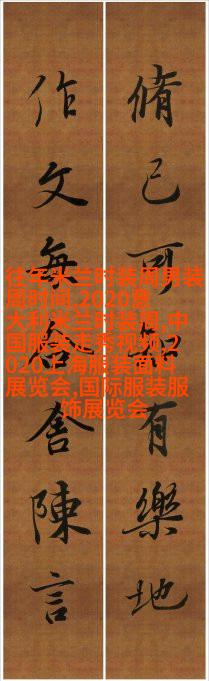 脩己可知有樂地
作文舍陳言
往年米兰时装周男装
周时间,2020意
大利米兰时装周,中
国服装走秀视频,2
020上海服装面料
展览会,国际服装服
饰展览会